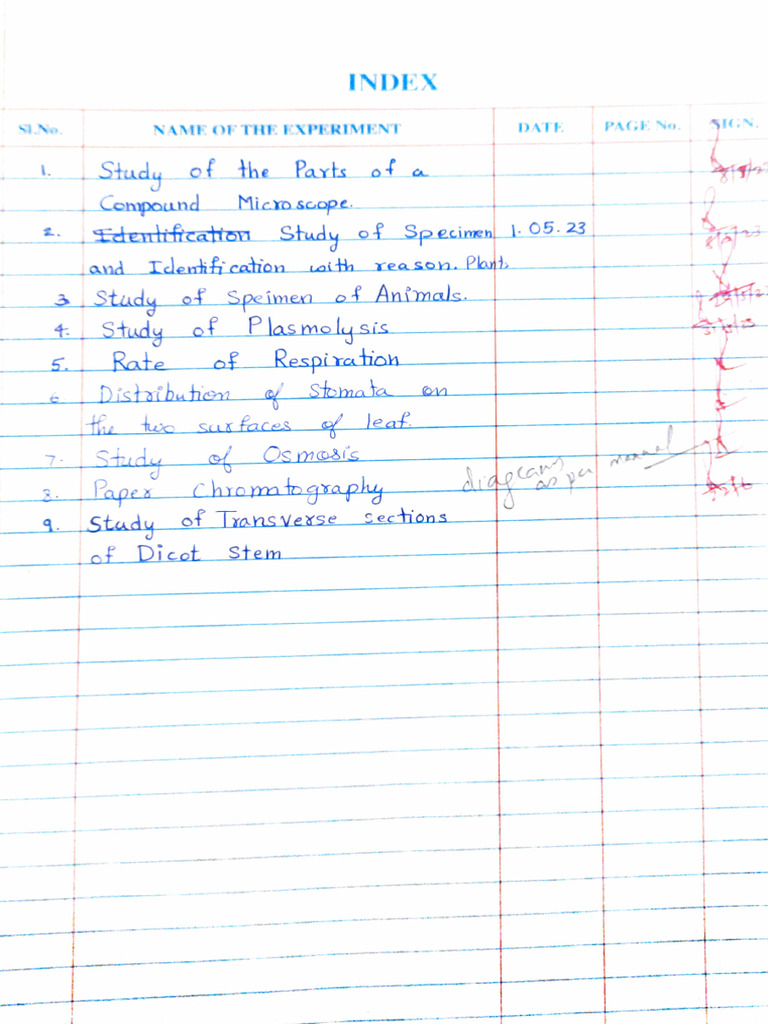 INDEX
Sl.No. NAME OF THE EXPERIMENT DATE PAGE No. SIGN.
1. Study of the Parts of a
Compound Microscope.
2. Identification Study of Specimen 1.05.23
and Identification with reason. Plant.
3 Study of Speimen of Animals.
4. Study of Plasmolysis
5. Rate of Respiration
6 Distribution of Stomata on
the two surfaces of leaf.
7. Study of Osmosis
8. Paper Chromatography diagrams as per manual
9. Study of Transverse sections
of Dicot Stem